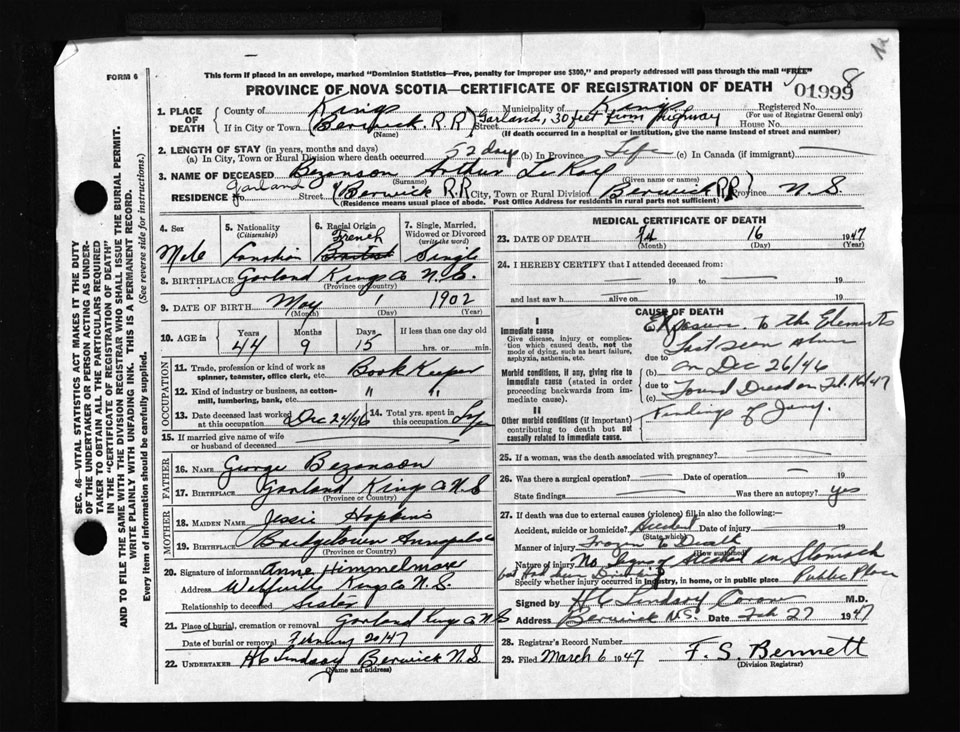 FORM 6
This form if placed in an envelope, marked "Dominion Statistics—Free, penalty for improper use $300," and properly addressed will pass through the mail "FREE"
8
PROVINCE OF NOVA SCOTIA—CERTIFICATE OF REGISTRATION OF DEATH
01999
1. PLACE OF DEATH
County of Kings Municipality of Kings Registered No.
(For use of Registrar General only)
If in City or Town (Berwick. R.R) Street Garland, 30 feet from highway House No.
(Name) (If death occurred in a hospital or institution, give the name instead of street and number)
2. LENGTH OF STAY (in years, months and days)
(a) In City, Town or Rural Division where death occurred 52 days (b) In Province Life (c) In Canada (if immigrant)
3. NAME OF DECEASED Bezanson Arthur LeRoy
(Surname) (Given name or names)
RESIDENCE No. Garland Street (Berwick R.R City, Town or Rural Division Berwick RR) Province N.S.
(Residence means usual place of abode. Post Office Address for residents in rural parts not sufficient)
4. Sex
5. Nationality (Citizenship)
6. Racial Origin
7. Single, Married, Widowed or Divorced (write the word)
Male Canadian French British Single
8. BIRTHPLACE Garland Kings Co N.S.
(Province or Country)
9. DATE OF BIRTH May 1 1902
(Month) (Day) (Year)
10. AGE in
Years Months Days If less than one day old
44 9 15 hrs. or min.
OCCUPATION
11. Trade, profession or kind of work as spinner, teamster, office clerk, etc. Book Keeper
12. Kind of industry or business, as cotton-mill, lumbering, bank, etc. " "
13. Date deceased last worked at this occupation Dec 24/46
14. Total yrs. spent in this occupation
15. If married give name of wife or husband of deceased
FATHER
16. NAME George Bezanson
17. BIRTHPLACE Garland Kings Co N.S
(Province or Country)
MOTHER
18. MAIDEN NAME Jessie Hopkins
19. BIRTHPLACE Bridgetown Annapolis Co
(Province or Country)
20. Signature of informant Anne Himmelman
Address Kings Co N.S.
Relationship to deceased Sister
21. Place of burial, cremation or removal Garland Kings Co N S
Date of burial or removal February 20/47
22. UNDERTAKER H C Lindsay Berwick N.S.
(Name and address)
MEDICAL CERTIFICATE OF DEATH
23. DATE OF DEATH 16 1947
(Month) (Day) (Year)
24. I HEREBY CERTIFY that I attended deceased from:
19 to 19
and last saw h alive on 19
CAUSE OF DEATH
I
Immediate cause
Give disease, injury or complication which caused death, not the mode of dying, such as heart failure, asphyxia, asthenia, etc.
Morbid conditions, if any, giving rise to immediate cause (stated in order proceeding backwards from immediate cause).
II
Other morbid conditions (if important) contributing to death but not causally related to immediate cause.
Exposure to the Elements
due to Last seen alive
(b) on Dec 26/46
due to Found Dead on Feb. 16/47
(c)
Findings of Jury
25. If a woman, was the death associated with pregnancy?
26. Was there a surgical operation? Date of operation 19
State findings Was there an autopsy? yes
27. If death was due to external causes (violence) fill in also the following:
Accident, suicide or homicide? Accident Date of injury 19
(State which)
Manner of injury Frozen to Death
(How sustained)
Nature of injury No Signs of Alcohol in Stomach
but Had been Drinking
Specify whether injury occurred in industry, in home, or in public place Public Place
Signed by H C Lindsay Coroner M.D.
Address Berwick N.S. Date Feb 27 1947
28. Registrar's Record Number
29. Filed March 6 1947 F. S. Bennett
(Division Registrar)
SEC. 46—VITAL STATISTICS ACT MAKES IT THE DUTY
OF THE UNDERTAKER OR PERSON ACTING AS UNDER-
TAKER TO OBTAIN ALL THE PARTICULARS REQUIRED
IN THE "CERTIFICATE OF REGISTRATION OF DEATH"
AND TO FILE THE SAME WITH THE DIVISION REGISTRAR WHO SHALL ISSUE THE BURIAL PERMIT.
WRITE PLAINLY WITH UNFADING INK. THIS IS A PERMANENT RECORD.
Every item of information should be carefully supplied. (See reverse side for instructions.)